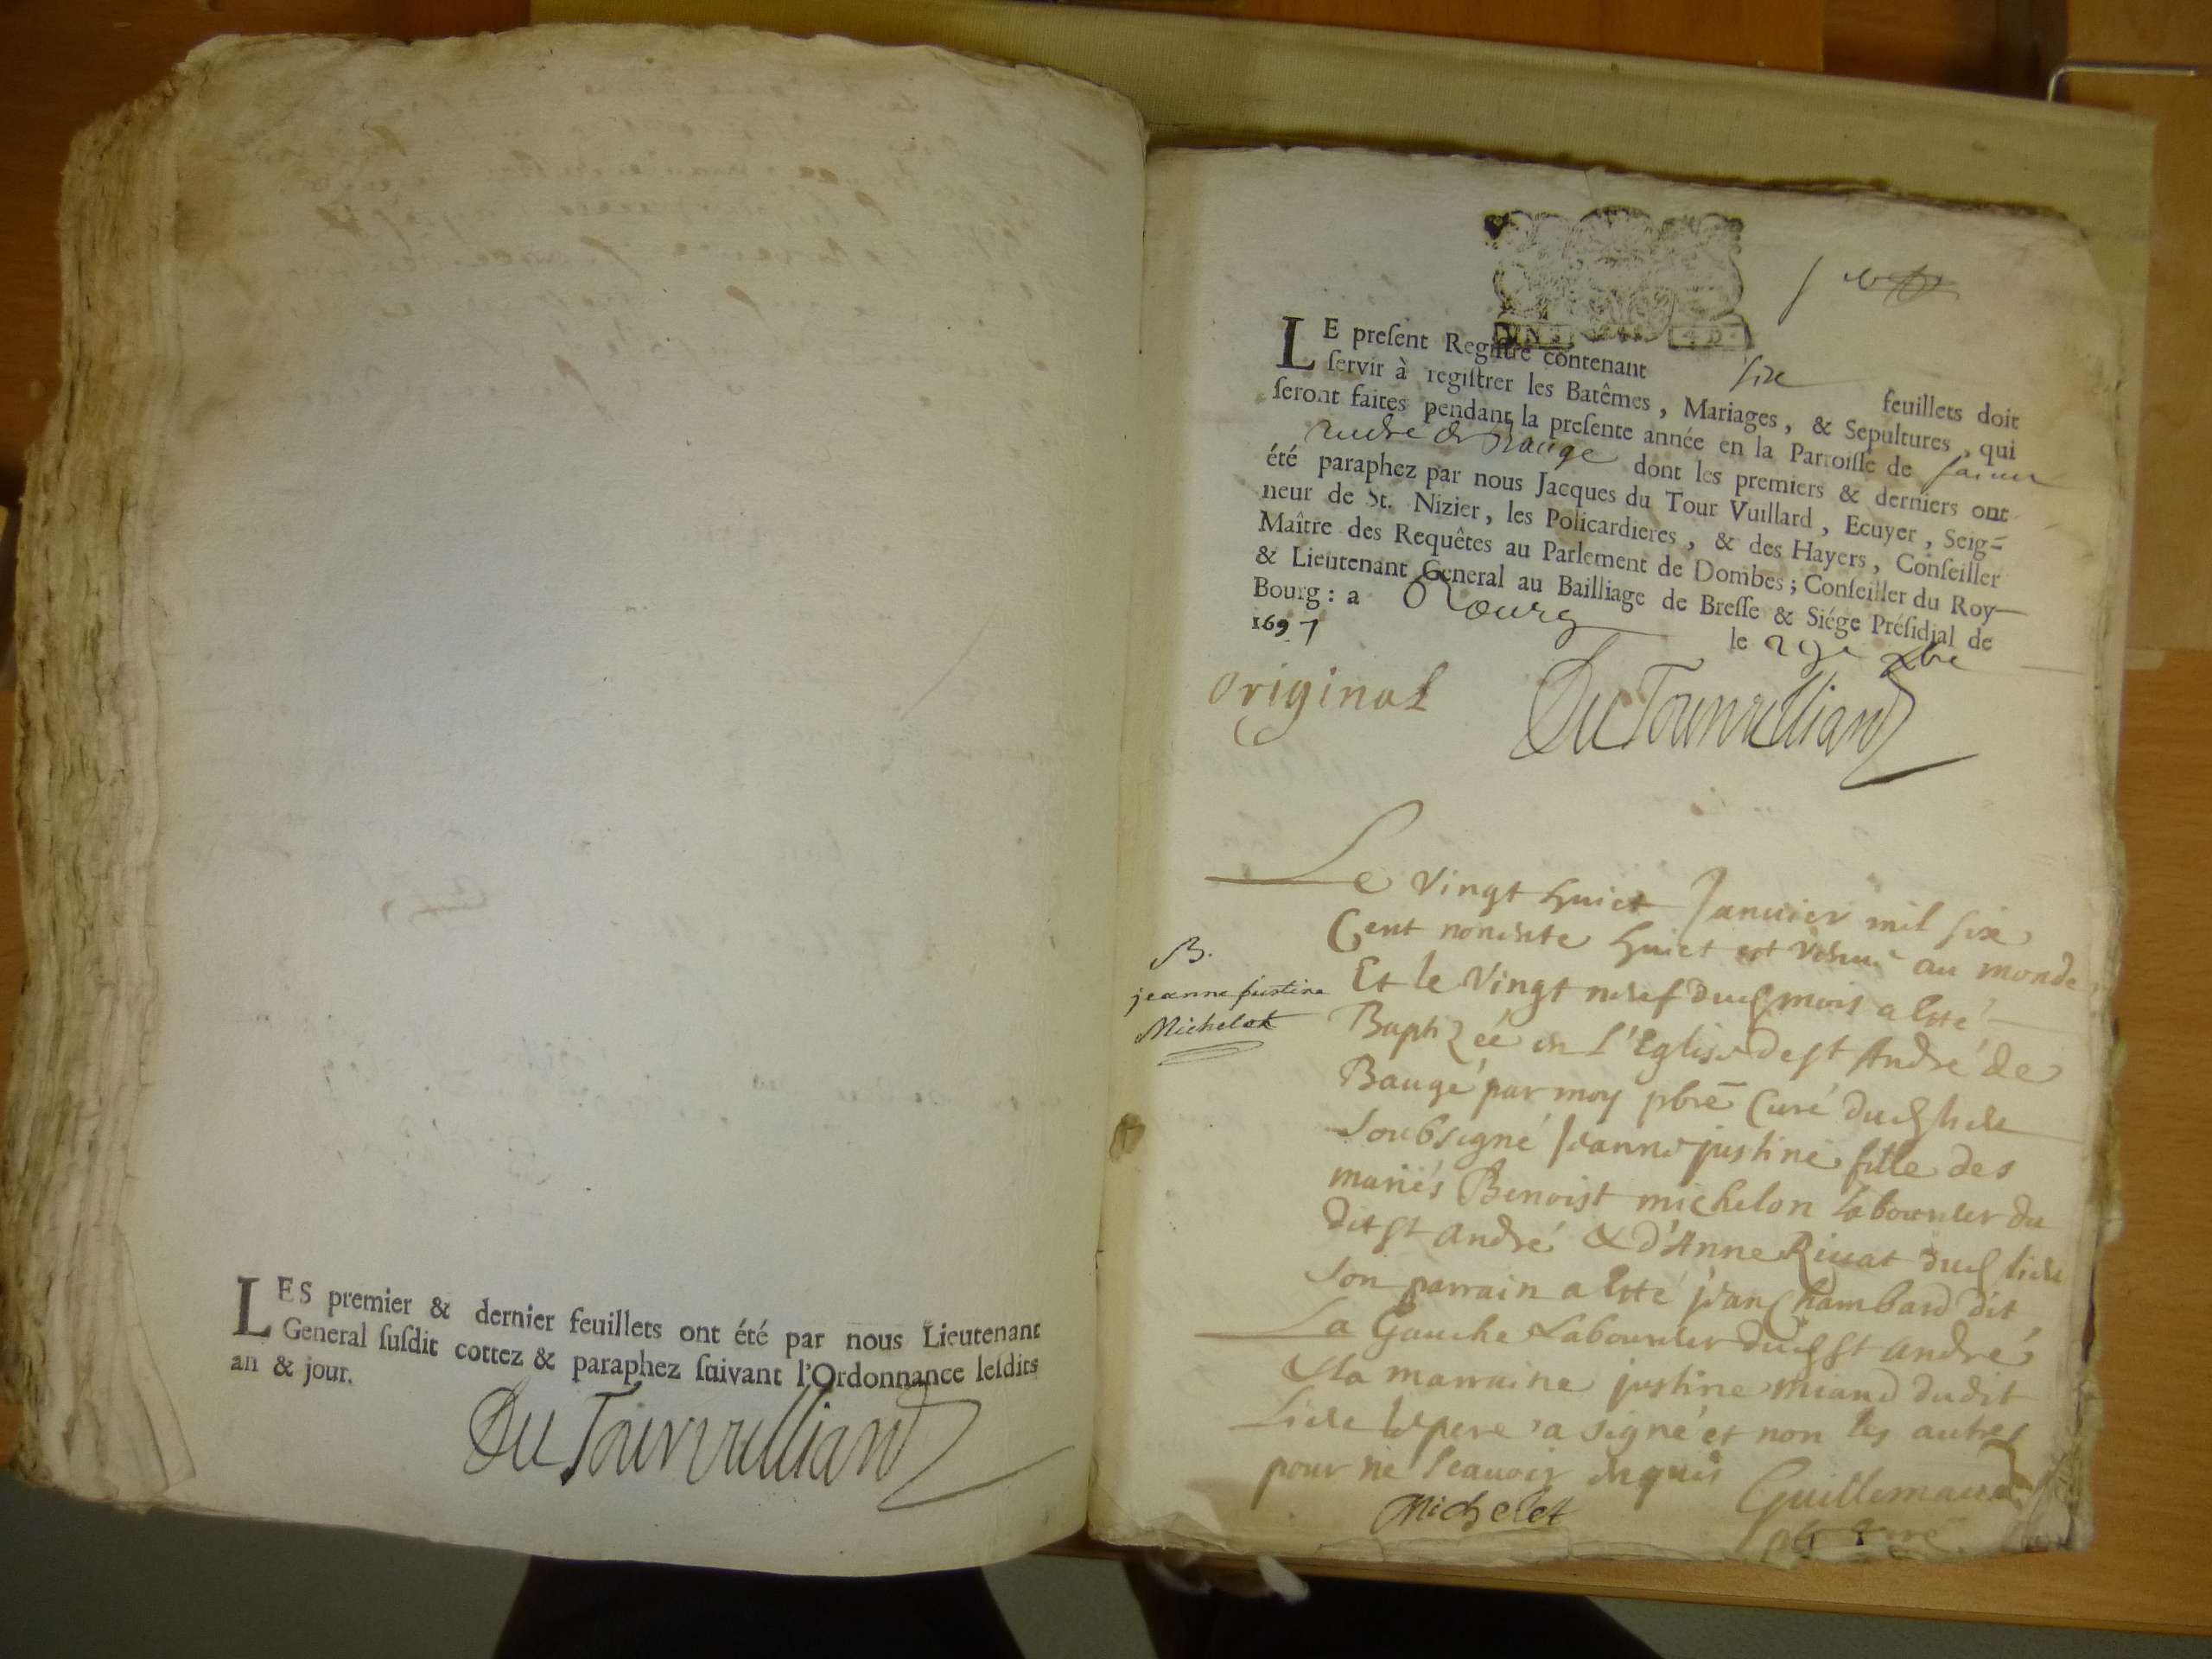 LES premier & dernier feuillets ont été par nous Lieutenant
General ſuſdit cottez & paraphez ſuivant l'Ordonnance leſdits
an & jour.
Du Tourvulliard
LE preſent Regiſtre contenant ſix feuillets doit
ſervir à regiſtrer les Batêmes, Mariages, & Sepultures, qui
ſeront faites pendant la preſente année en la Parroiſſe de ſainct
Andre de Bauge dont les premiers & derniers ont
été paraphez par nous Jacques du Tour Vuillard, Ecuyer, Seig=
neur de St. Nizier, les Policardieres, & des Hayers, Conſeiller
Maître des Requêtes au Parlement de Dombes; Conſeiller du Roy
& Lieutenant General au Bailliage de Breſſe & Siége Préſidial de
Bourg: a Bourg le 29e xbre
1697
original
Du Tourvulliard
Le vingt huict Janvier mil six
Cent nonente huict est venue au monde
Et le Vingt neuf dud mois a esté
B.
jeanne justine
Michelet
Baptizéé en L'Eglise de st André de
Baugé par moy pbre Curé dud lieu
Soubsigné Jeanne justine fille des
mariés Benoist michelon Laboureur du
dit st André & d'Anne Rivat dud lieu
Son parrain a esté jean Chambard dit
La Gauche Laboureur dud st André
& la marraine justine miand dudit
Lieu le pere a signé et non les autres
pour ne sçauoir enquis
Michelet
Guillemaud
curé